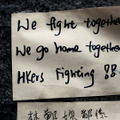 We fight together
We go home together
HKers Fighting !!